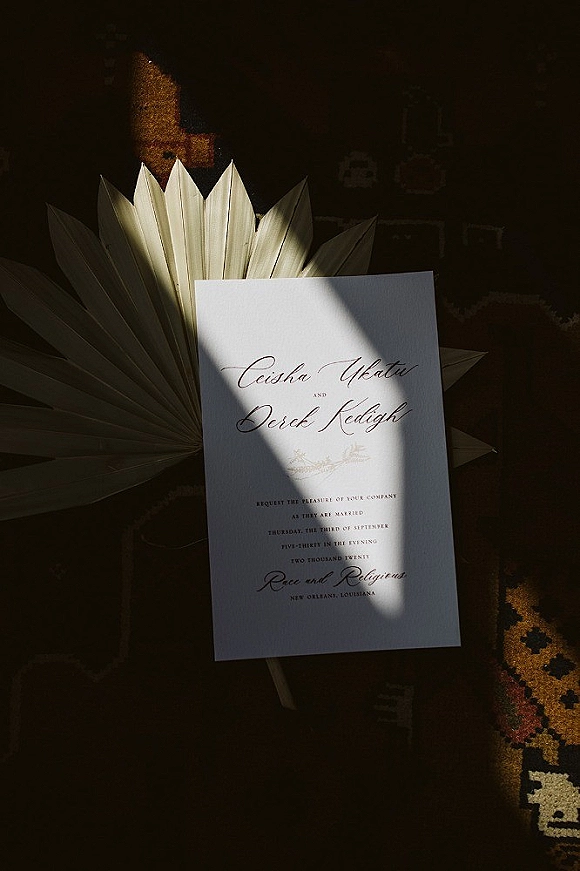 Ceisha Ukatu
AND
Derek Kedigh
REQUEST THE PLEASURE OF YOUR COMPANY
AS THEY ARE MARRIED
THURSDAY, THE THIRD OF SEPTEMBER
FIVE-THIRTY IN THE EVENING
TWO THOUSAND TWENTY
Race and Religious
NEW ORLEANS, LOUISIANA